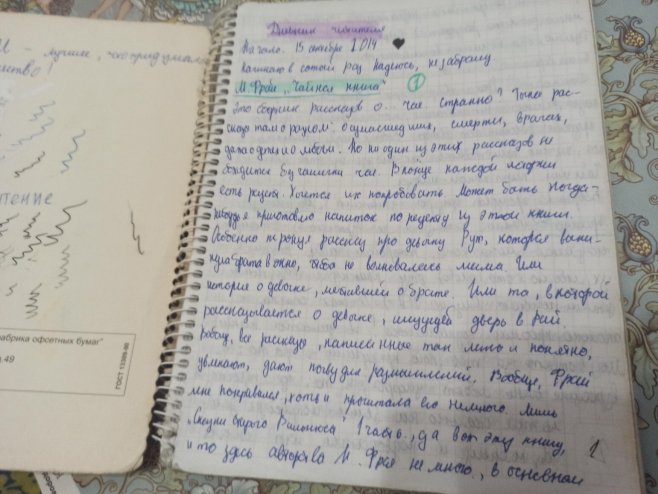 И - лучшее, что придумало
чество!
чтение
фабрика офсетных бумаг"
.49
ГОСТ 13309-90
Дневник читателя
Начало. 15 октября 2014 ♥
Начинаю в сотый раз. Надеюсь, не заброшу.
М. Фрай „Чайная книга" 1
Это сборник рассказов о... чае. Странно? Точнее рас-
сказы там о разном: о сумасшедших, смерти, врачах,
даже о детях и о любви. Но ни один из этих рассказов не
обходится без чашечки чая. В конце каждой истории
есть рецепт. Хочется их попробовать. Может быть когда-
нибудь я приготовлю напиток по рецепту из этой книги.
Особенно тронул рассказ про девочку Рут, которая выки-
нула брата в окно, чтобы не волновалась мама. Или
история о девочке, мечтавшей о брате. Или та, в которой
рассказывается о девочке, ищущей дверь в рай.
все рассказы, написанные там легко и понятно,
увлекают, дают почву для размышлений. Вообще, Фрай
мне понравился, хоть и прочитала его немного. Лишь
„Сказки старого Вильнюса" 1 часть, да вот эту книгу,
и то здесь авторства М. Фрая не много, в основном
1